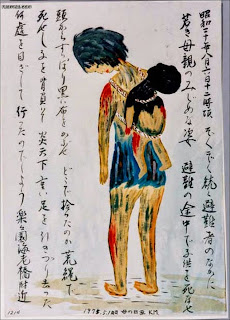 昭和二十年八月六日十二時頃 ぞくぞく続く避難者のなかに
若き母親のみじめな姿 避難の途中で子供を死なせ
頭からすっぽり黒い布をかぶせ どこで拾ったのか荒縄で
死せし子を背負い 炎天下重い足を引きづり去った
何処を目ざして 行ったのでしょう 楽々園海老橋附近
1975. 5. 母の日 K.M